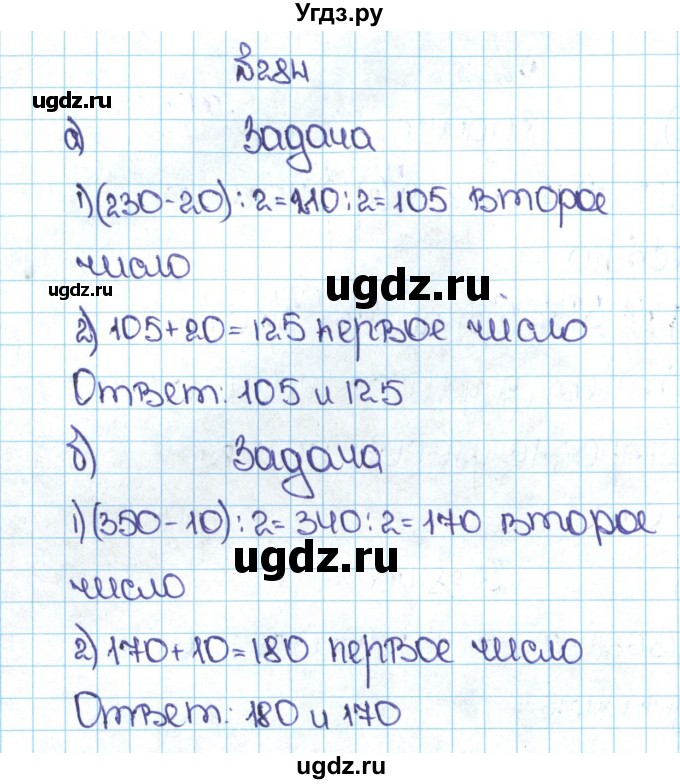 Угдз.ру
№284
ugdz.ru
а) Задача
1) (230-20) : 2 = 210 : 2 = 105 второе
число
ugdz.ru
ugdz.ru
2) 105 + 20 = 125 первое число
Ответ: 105 и 125
б) Задача
1) (350 - 10) : 2 = 340 : 2 = 170 второе
ugdz.ru
число
2) 170 + 10 = 180 первое число
Ответ: 180 и 170
ugdz.ru